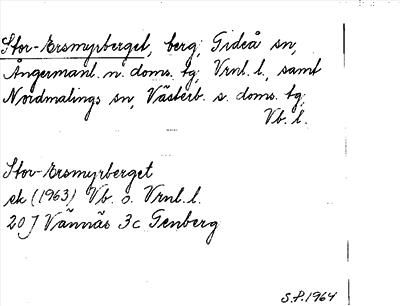 Stor-Ersmyrberget, berg, Gideå sn,
Ångermanl. n. doms. tg, Vrnl. l., samt
Nordmalings sn, Västerb. s. doms. tg,
Vb. l.
Stor-Ersmyrberget
ek (1963) Vb. o. Vrnl. l.
20 J Vännäs 3c Genberg
S.P. 1964